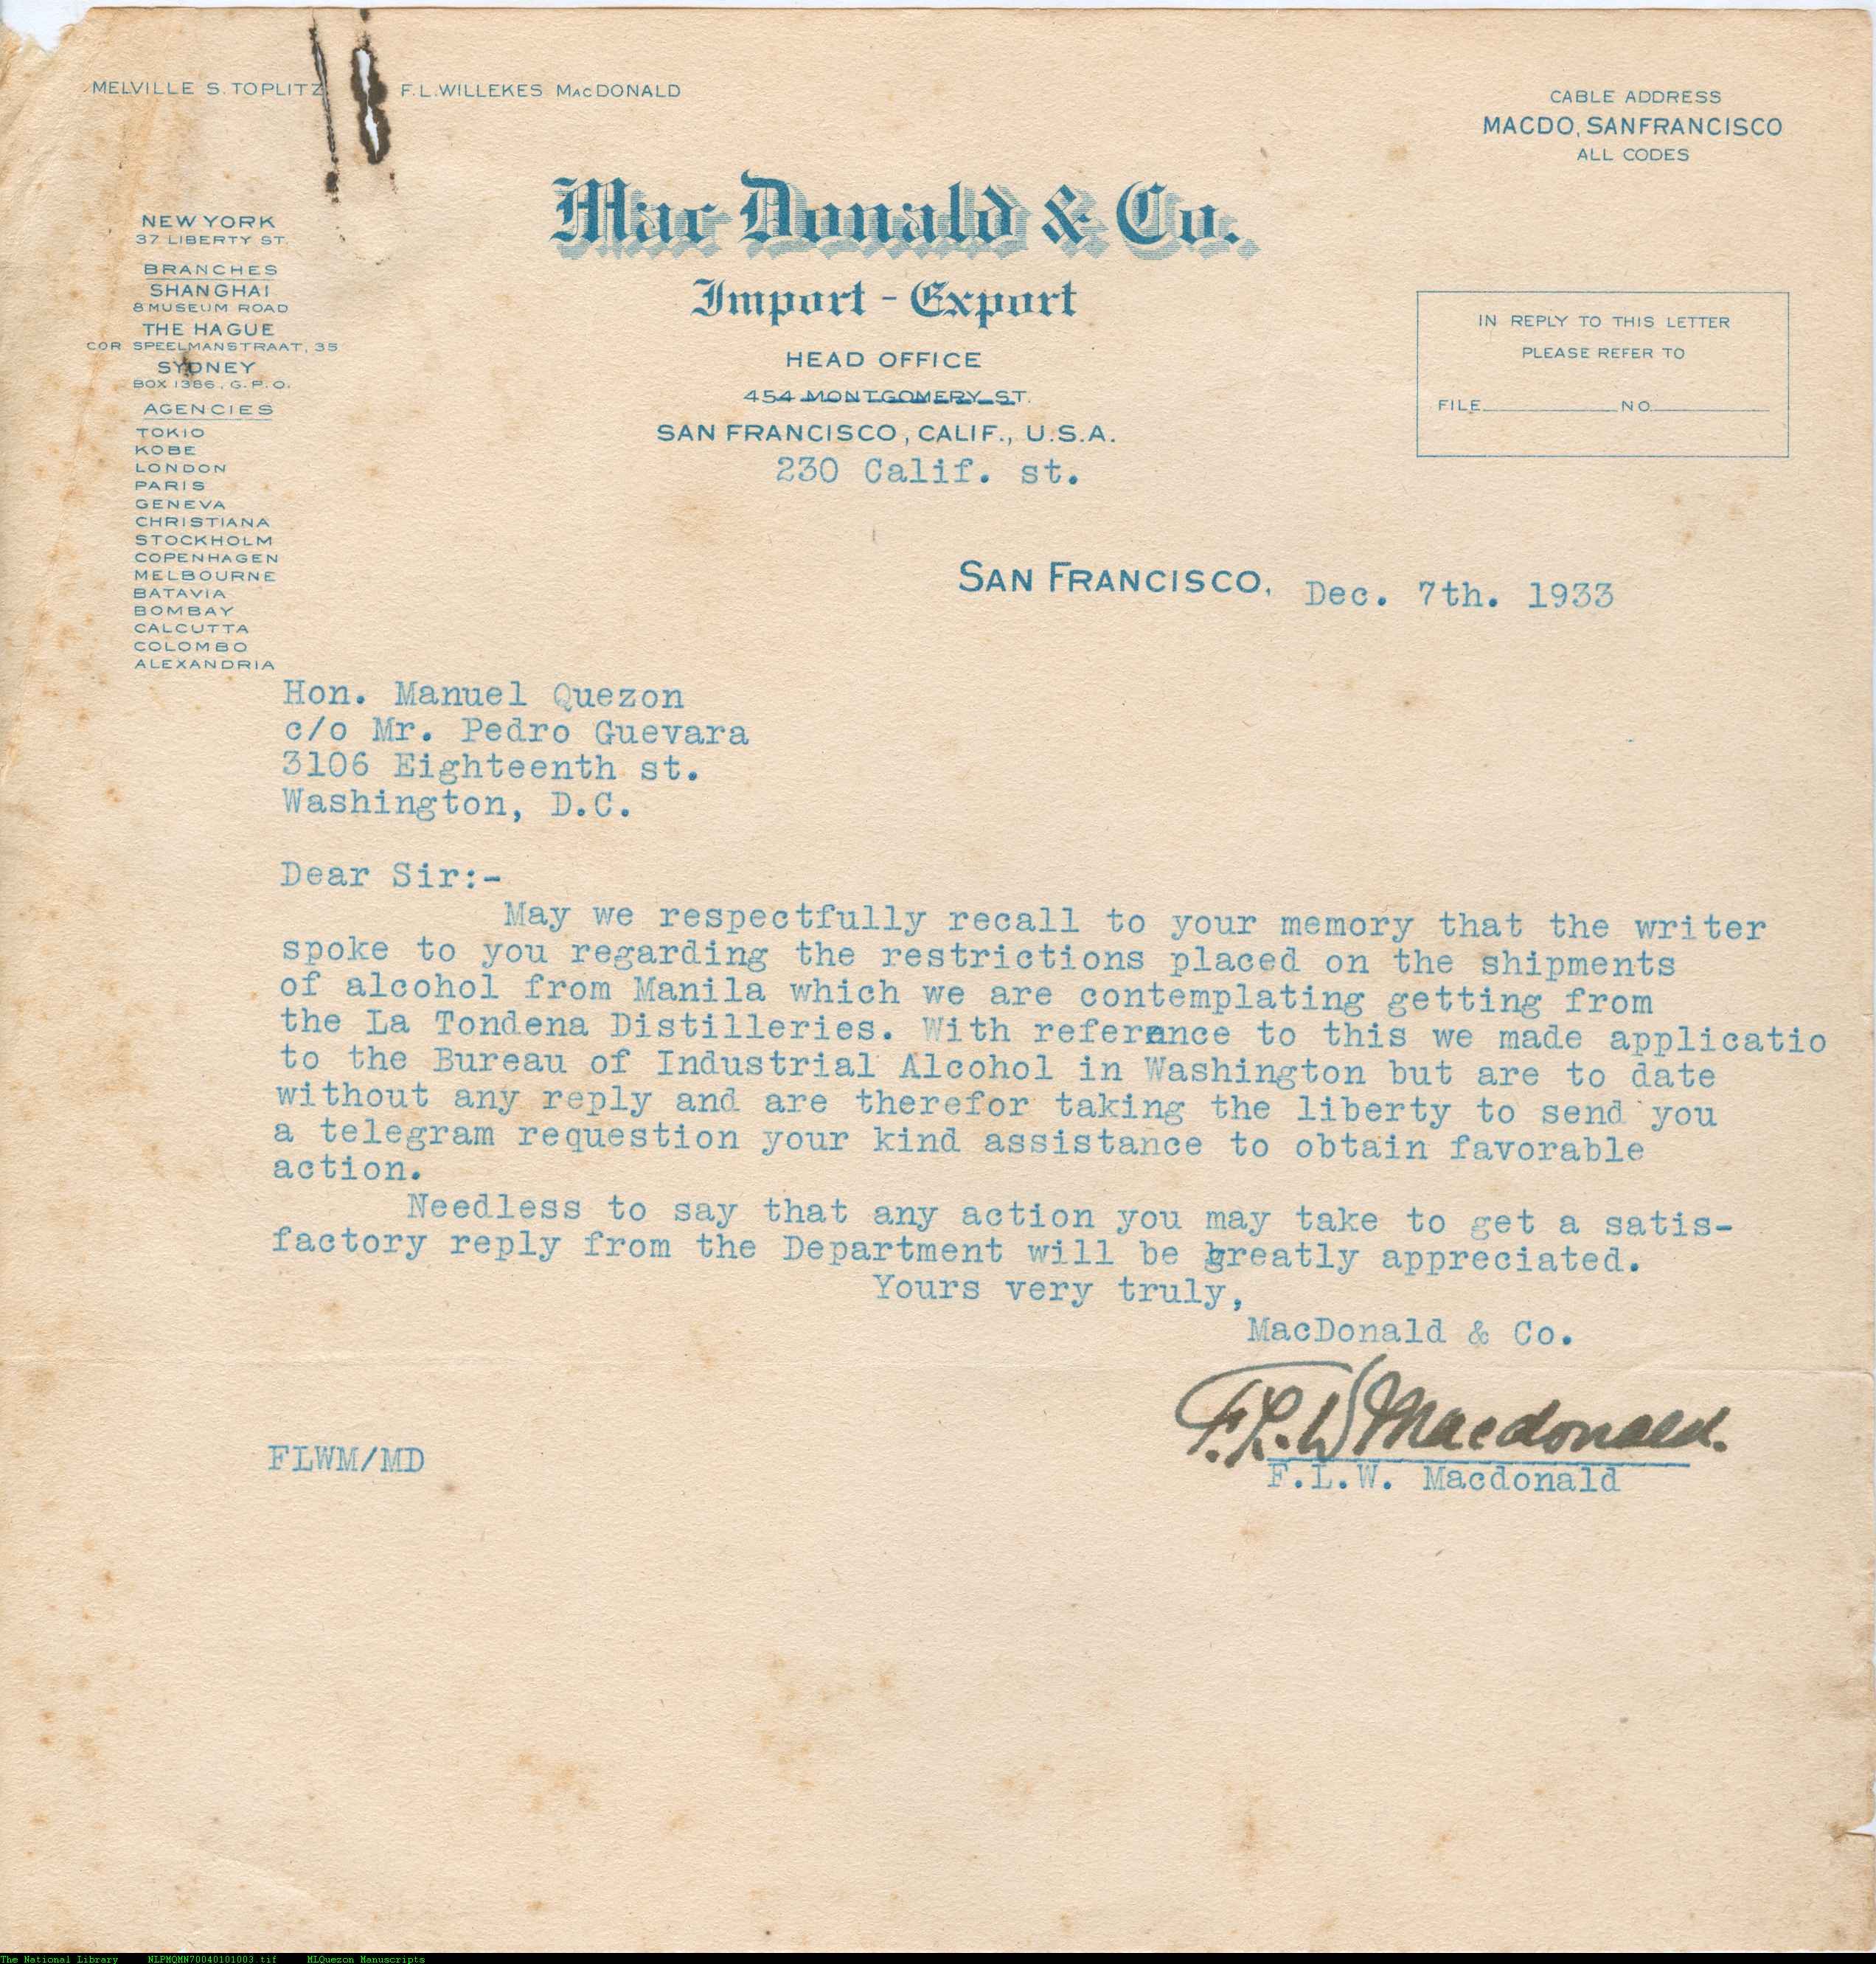 MELVILLE S. TOPLITZ F.L.WILLEKES MACDONALD
CABLE ADDRESS
MACDO, SANFRANCISCO
ALL CODES
Mac Donald & Co.
Import - Export
HEAD OFFICE
454 MONTGOMERY ST.
SAN FRANCISCO, CALIF., U.S.A.
230 Calif. st.
NEW YORK
37 LIBERTY ST.
BRANCHES
SHANGHAI
8 MUSEUM ROAD
THE HAGUE
COR SPEELMANSTRAAT, 35
SYDNEY
BOX 1386, G.P.O.
AGENCIES
TOKIO
KOBE
LONDON
PARIS
GENEVA
CHRISTIANA
STOCKHOLM
COPENHAGEN
MELBOURNE
BATAVIA
BOMBAY
CALCUTTA
COLOMBO
ALEXANDRIA
IN REPLY TO THIS LETTER
PLEASE REFER TO
FILE NO
SAN FRANCISCO, Dec. 7th. 1933
Hon. Manuel Quezon
c/o Mr. Pedro Guevara
3106 Eighteenth st.
Washington, D.C.
Dear Sir:-
May we respectfully recall to your memory that the writer
spoke to you regarding the restrictions placed on the shipments
of alcohol from Manila which we are contemplating getting from
the La Tondena Distilleries. With reference to this we made applicatio
to the Bureau of Industrial Alcohol in Washington but are to date
without any reply and are therefor taking the liberty to send you
a telegram requestion your kind assistance to obtain favorable
action.
Needless to say that any action you may take to get a satis-
factory reply from the Department will be greatly appreciated.
Yours very truly,
MacDonald & Co.
F.L.W Macdonald.
F.L.W. Macdonald
FLWM/MD
The National Library NLPMQMN70040101003.tif MLQuezon Manuscripts